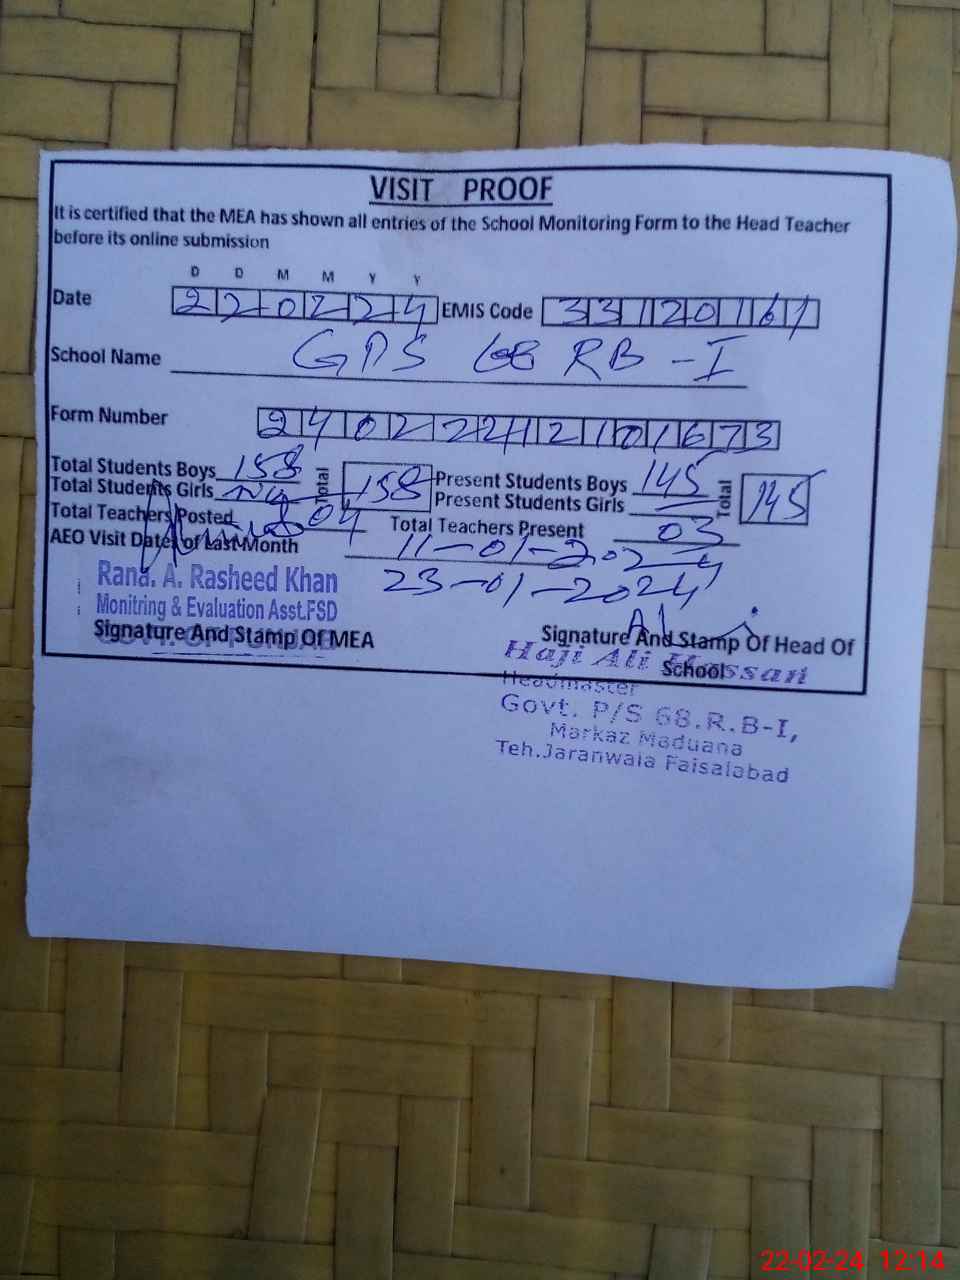 VISIT PROOF
It is certified that the MEA has shown all entries of the School Monitoring Form to the Head Teacher
before its online submission
D D M M Y Y
Date 220224 EMIS Code 33120161
School Name GPS 68 RB-I
Form Number
Total Students Boys 158 Total 158 Present Students Boys 145 Total 145
Total Students Girls Present Students Girls —
Total Teachers Posted 04 Total Teachers Present 03
AEO Visit Dates of Last Month 11-01-2024
23-01-2024
Rana. A. Rasheed Khan
Monitring & Evaluation Asst.FSD
GOVT. OF PUNJAB
Signature And Stamp Of MEA
Signature And Stamp Of Head Of
School
Haji Ali Hassan
Headmaster
Govt. P/S 68.R.B-I,
Markaz Maduana
Teh.Jaranwala Faisalabad
22-02-24 12:14